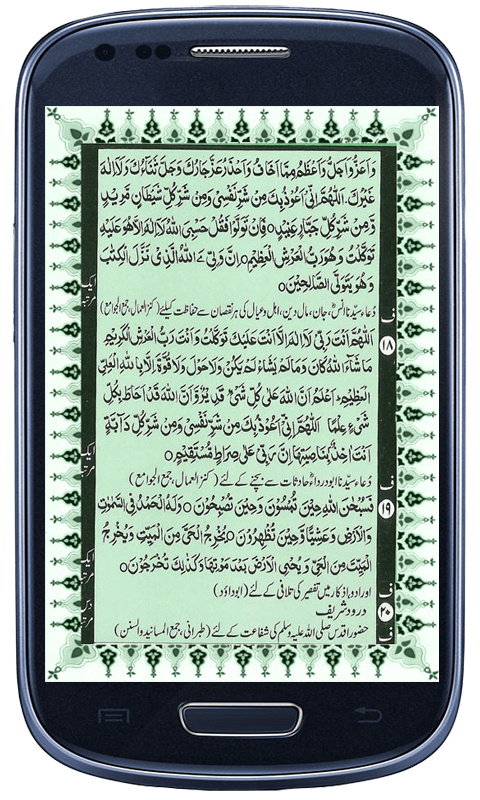 وَاَعَزُّ وَاَجَلُّ وَاَعْظَمُ مِمَّا اَخَافُ وَاَحْذَرُ عَزَّ جَارُكَ وَجَلَّ ثَنَاۤؤُكَ وَلَاۤ اِلٰهَ
غَيْرُكَ۔ اَللّٰهُمَّ اِنِّيْۤ اَعُوْذُ بِكَ مِنْ شَرِّ نَفْسِيْ وَمِنْ شَرِّ كُلِّ شَيْطَانٍ مَّرِيْدٍ
وَّمِنْ شَرِّ كُلِّ جَبَّارٍ عَنِيْدٍ فَاِنْ تَوَلَّوْا فَقُلْ حَسْبِيَ اللّٰهُ لَاۤ اِلٰهَ اِلَّا هُوَ عَلَيْهِ
تَوَكَّلْتُ وَهُوَ رَبُّ الْعَرْشِ الْعَظِيْمِ ۝ اِنَّ وَلِيِّۦَ اللّٰهُ الَّذِيْ نَزَّلَ الْكِتٰبَ
وَهُوَ يَتَوَلَّى الصَّالِحِيْنَ ۝
ایک مرتبہ
ف دُعاء سیّدنا انسؓ، جان، مال، دین، اہل و عیال کی ہر نقصان سے حفاظت کیلئے (کنزالعمال، جمع الجوامع)
۱۸ اَللّٰهُمَّ اَنْتَ رَبِّيْ لَاۤ اِلٰهَ اِلَّاۤ اَنْتَ عَلَيْكَ تَوَكَّلْتُ وَاَنْتَ رَبُّ الْعَرْشِ الْكَرِيْمِ
مَا شَآءَ اللّٰهُ كَانَ وَمَا لَمْ يَشَأْ لَمْ يَكُنْ وَلَا حَوْلَ وَلَا قُوَّةَ اِلَّا بِاللّٰهِ الْعَلِيِّ
الْعَظِيْمِ، اَعْلَمُ اَنَّ اللّٰهَ عَلٰى كُلِّ شَيْءٍ قَدِيْرٌ وَّاَنَّ اللّٰهَ قَدْ اَحَاطَ بِكُلِّ
شَيْءٍ عِلْمًا اَللّٰهُمَّ اِنِّيْۤ اَعُوْذُ بِكَ مِنْ شَرِّ نَفْسِيْ وَمِنْ شَرِّ كُلِّ دَآبَّةٍ
اَنْتَ اٰخِذٌۢ بِنَاصِيَتِهَا اِنَّ رَبِّيْ عَلٰى صِرَاطٍ مُّسْتَقِيْمٍ ۝
ایک مرتبہ
ف دُعاء سیّدنا ابودرداءؓ حادثات سے بچنے کے لئے (کنزالعمال، جمع الجوامع)
۱۹ فَسُبْحٰنَ اللّٰهِ حِيْنَ تُمْسُوْنَ وَحِيْنَ تُصْبِحُوْنَ ۝ وَلَهُ الْحَمْدُ فِي السَّمٰوٰتِ
وَالْاَرْضِ وَعَشِيًّا وَّحِيْنَ تُظْهِرُوْنَ ۝ يُخْرِجُ الْحَيَّ مِنَ الْمَيِّتِ وَيُخْرِجُ
الْمَيِّتَ مِنَ الْحَيِّ وَيُحْيِ الْاَرْضَ بَعْدَ مَوْتِهَا وَكَذٰلِكَ تُخْرَجُوْنَ ۝
ایک مرتبہ
ف اوراد و اذکار میں تقصیر کی تلافی کے لئے (ابوداؤد)
۲۰ درود شریف
دس مرتبہ
ف حضور اقدس صلی اللہ علیہ وسلم کی شفاعت کے لئے (طبرانی، جمع المسانید والسنن)